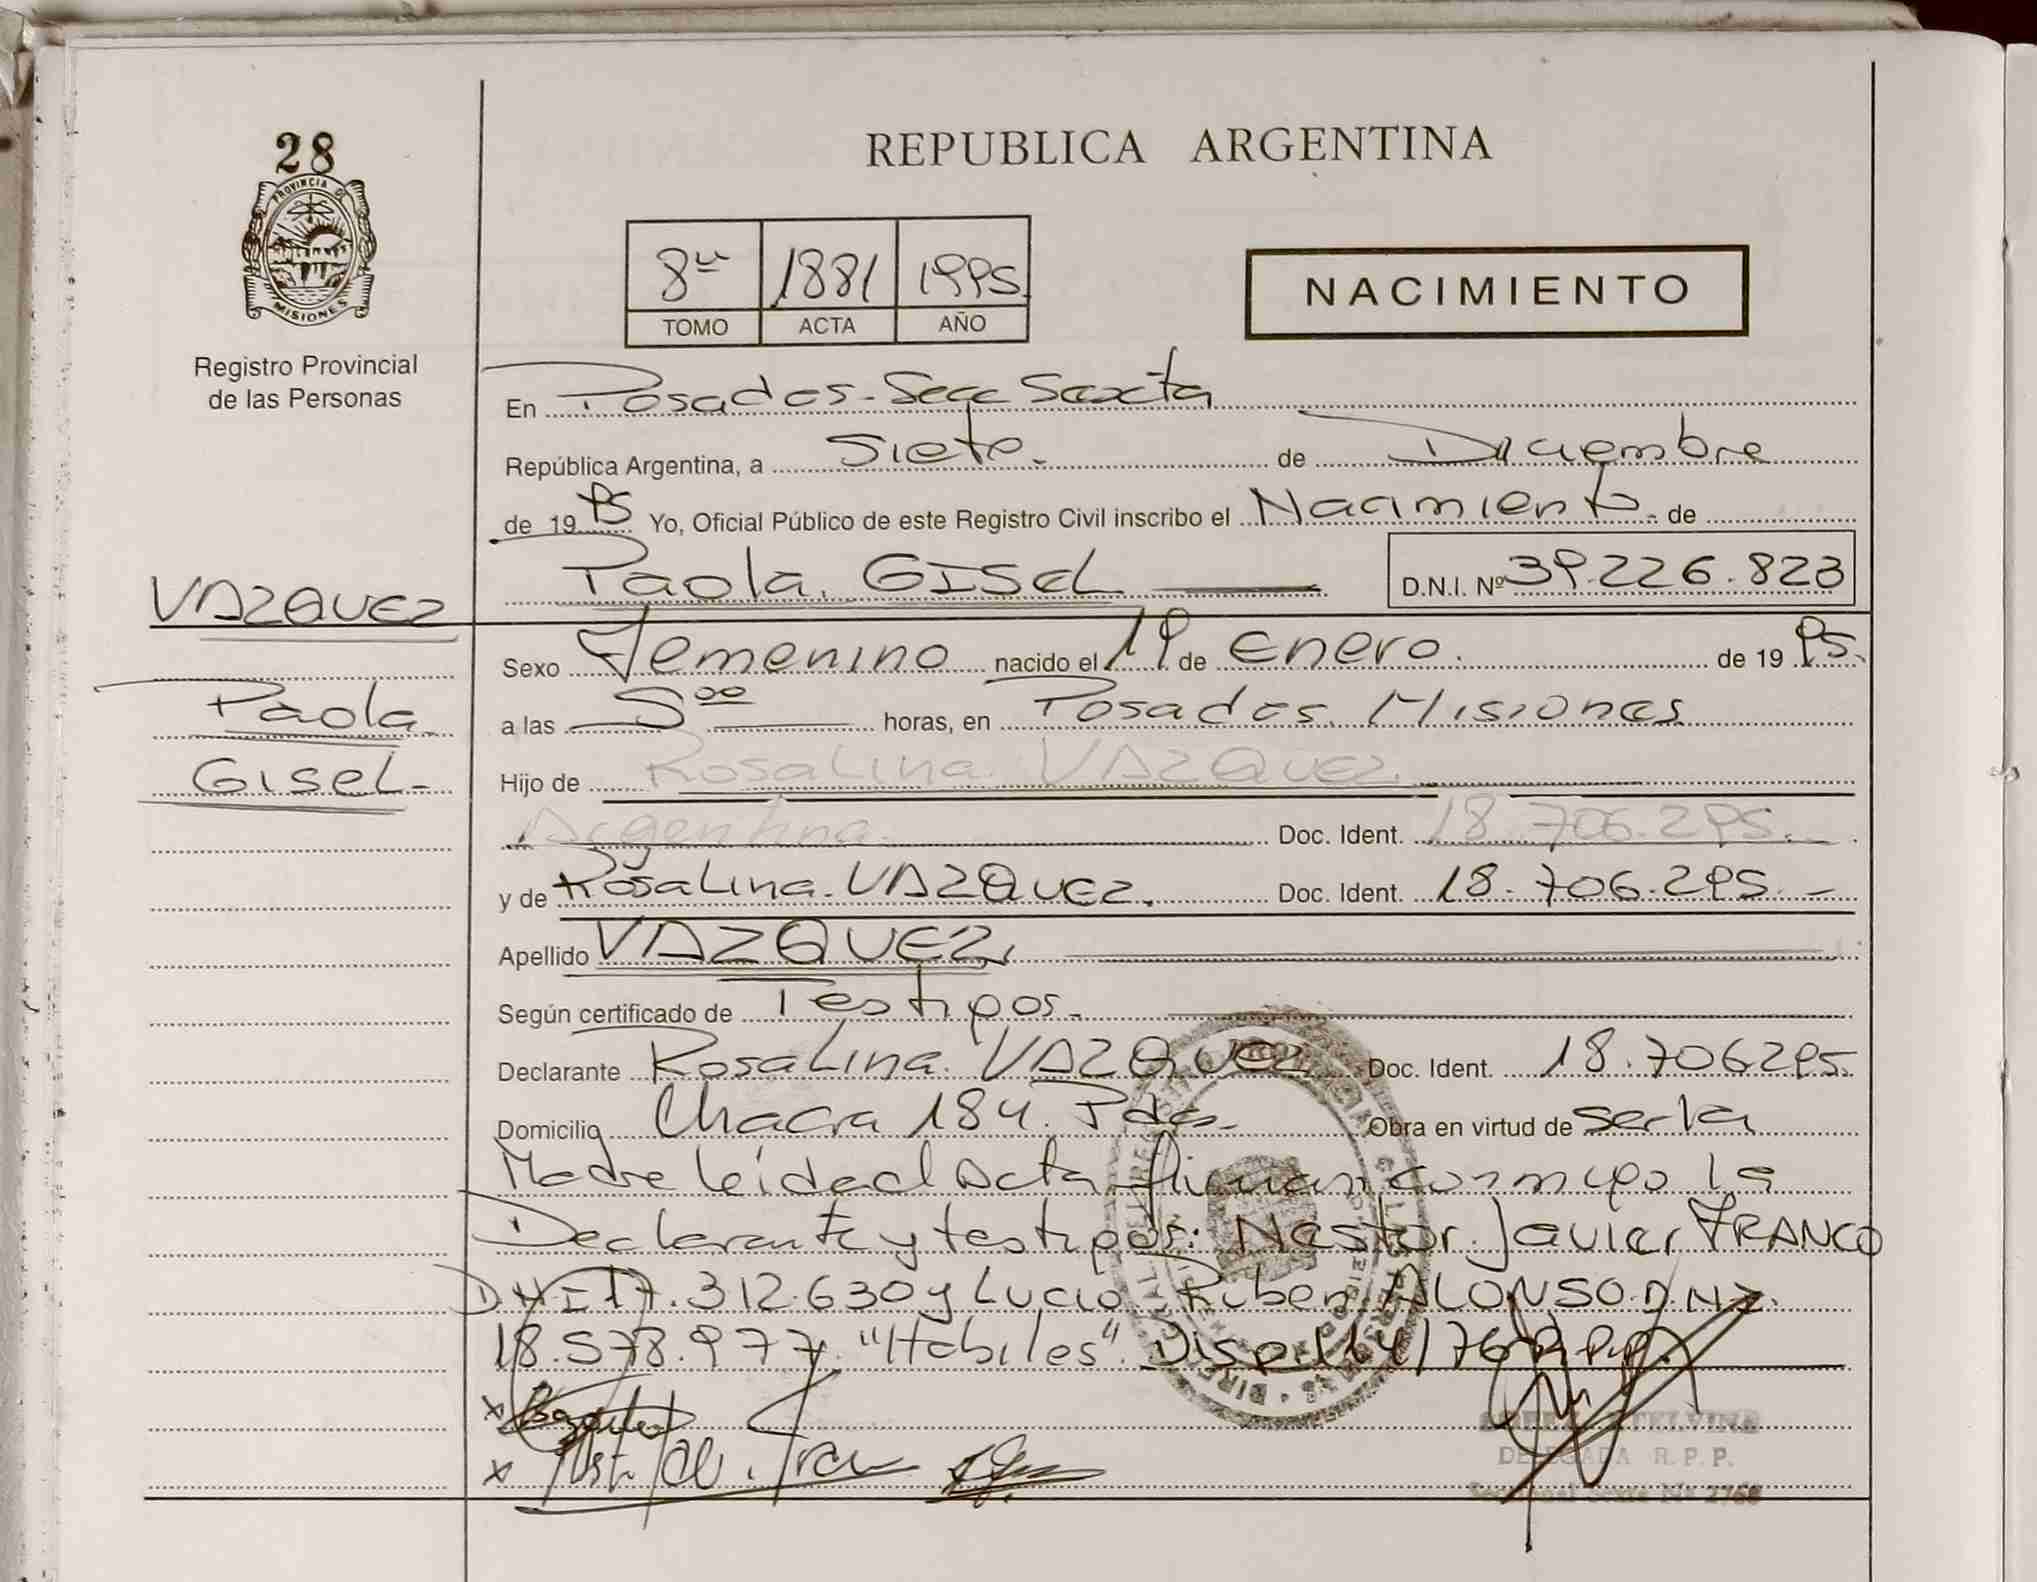 28
PROVINCIA DE
MISIONES
Registro Provincial
de las Personas
REPUBLICA ARGENTINA
8vo 1881 1995.
TOMO ACTA AÑO
NACIMIENTO
En Posadas - Secc Sexta
República Argentina, a Siete. de Diciembre
de 1995 Yo, Oficial Público de este Registro Civil inscribo el Nacimiento. de
Paola. GISEL D.N.I. Nº 39.226.823
VAZQUEZ
Paola.
GISEL.
Sexo Femenino nacido el 19 de Enero. de 1995.
a las 5 00 horas, en Posadas. Misiones
Hijo de Rosalina. VAZQUEZ.
Argentina. Doc. Ident. 18.706.295.
y de Rosalina. VAZQUEZ. Doc. Ident. 18.706.295.
Apellido VAZQUEZ.
Según certificado de Testigos.
Declarante Rosalina. VAZQUEZ Doc. Ident. 18.706295.
Domicilio Chacra 184. Pdas. Obra en virtud de ser la
Madre leida el Acta firman conmigo la
Declarante y testigos: Nestor. Javier FRANCO
DNI 17.312.630 y Lucio Ruben ALONSO. D.N.I.
18.578.977. "Habiles". Disp. 114/76 R.P.P.
ETELVINA
DELEGADA R.P.P.
Seccional Sexta Nº 2768